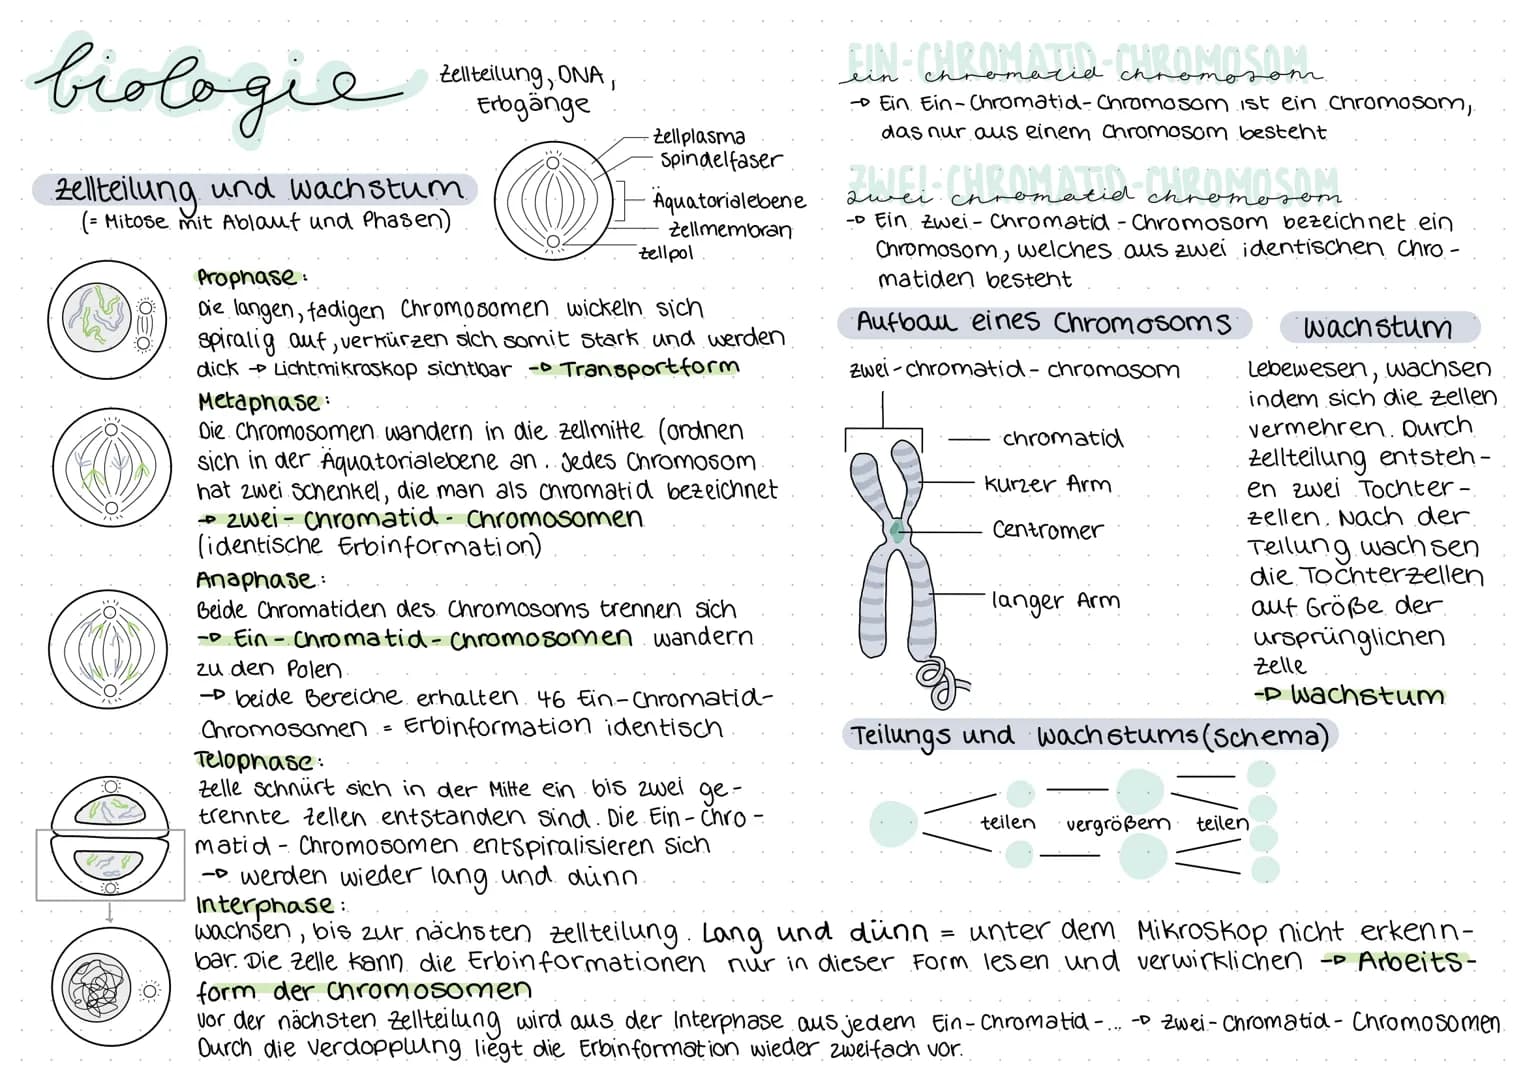 biologie
Zellteilung, DNA,
Erbgänge
Zellplasma
Spindelfaser
Äquatorialebene
Zellmembran
Zellpol
Zellteilung und Wachstum
(= Mitose mit Ablauf und Phasen)
Prophase:
Die langen, fadigen Chromosomen wickeln sich
spiralig auf, verkürzen sich somit stark und werden
dick → Lichtmikroskop sichtbar → Transportform
Metaphase:
Die Chromosomen wandern in die Zellmitte (ordnen
sich in der Äquatorialebene an. Jedes Chromosom
hat zwei Schenkel, die man als Chromatid bezeichnet
→ Zwei-Chromatid-Chromosomen
(identische Erbinformation)
Anaphase:
Beide Chromatiden des Chromosoms trennen sich
→ Ein-Chromatid-Chromosomen wandern
zu den Polen
→ beide Bereiche erhalten 46 Ein-Chromatid-
Chromosomen = Erbinformation identisch
Telophase:
Zelle schnürt sich in der Mitte ein bis zwei ge-
trennte Zellen entstanden sind. Die Ein-Chro-
matid-Chromosomen entspiralisieren sich
→ werden wieder lang und dünn
Interphase:
Wachsen, bis zur nächsten Zellteilung. Lang und dünn = unter dem Mikroskop nicht erkenn-
bar. Die Zelle kann die Erbinformationen nur in dieser Form lesen und verwirklichen → Arbeits-
form der Chromosomen
Vor der nächsten Zellteilung wird aus der Interphase aus jedem Ein-Chromatid-... → Zwei-Chromatid-Chromosomen
Durch die Verdopplung liegt die Erbinformation wieder zweifach vor.
EIN-CHROMATID-CHROMOSOM
ein chromatid chromosom
→ Ein Ein-Chromatid-Chromosom ist ein Chromosom,
das nur aus einem Chromosom besteht
ZWEI-CHROMATID-CHROMOSOM
zwei chromatid chromosom
→ Ein Zwei-Chromatid-Chromosom bezeichnet ein
Chromosom, welches aus zwei identischen Chro-
matiden besteht
Aufbau eines Chromosoms
zwei-chromatid-chromosom
chromatid
kurzer Arm
Centromer
langer Arm
Wachstum
Lebewesen, wachsen
indem sich die Zellen
vermehren. Durch
Zellteilung entsteh-
en zwei Tochter-
zellen. Nach der
Teilung wachsen
die Tochterzellen
auf Größe der
ursprünglichen
Zelle
→ Wachstum
Teilungs und Wachstums (Schema)
teilen
vergrößern
teilen